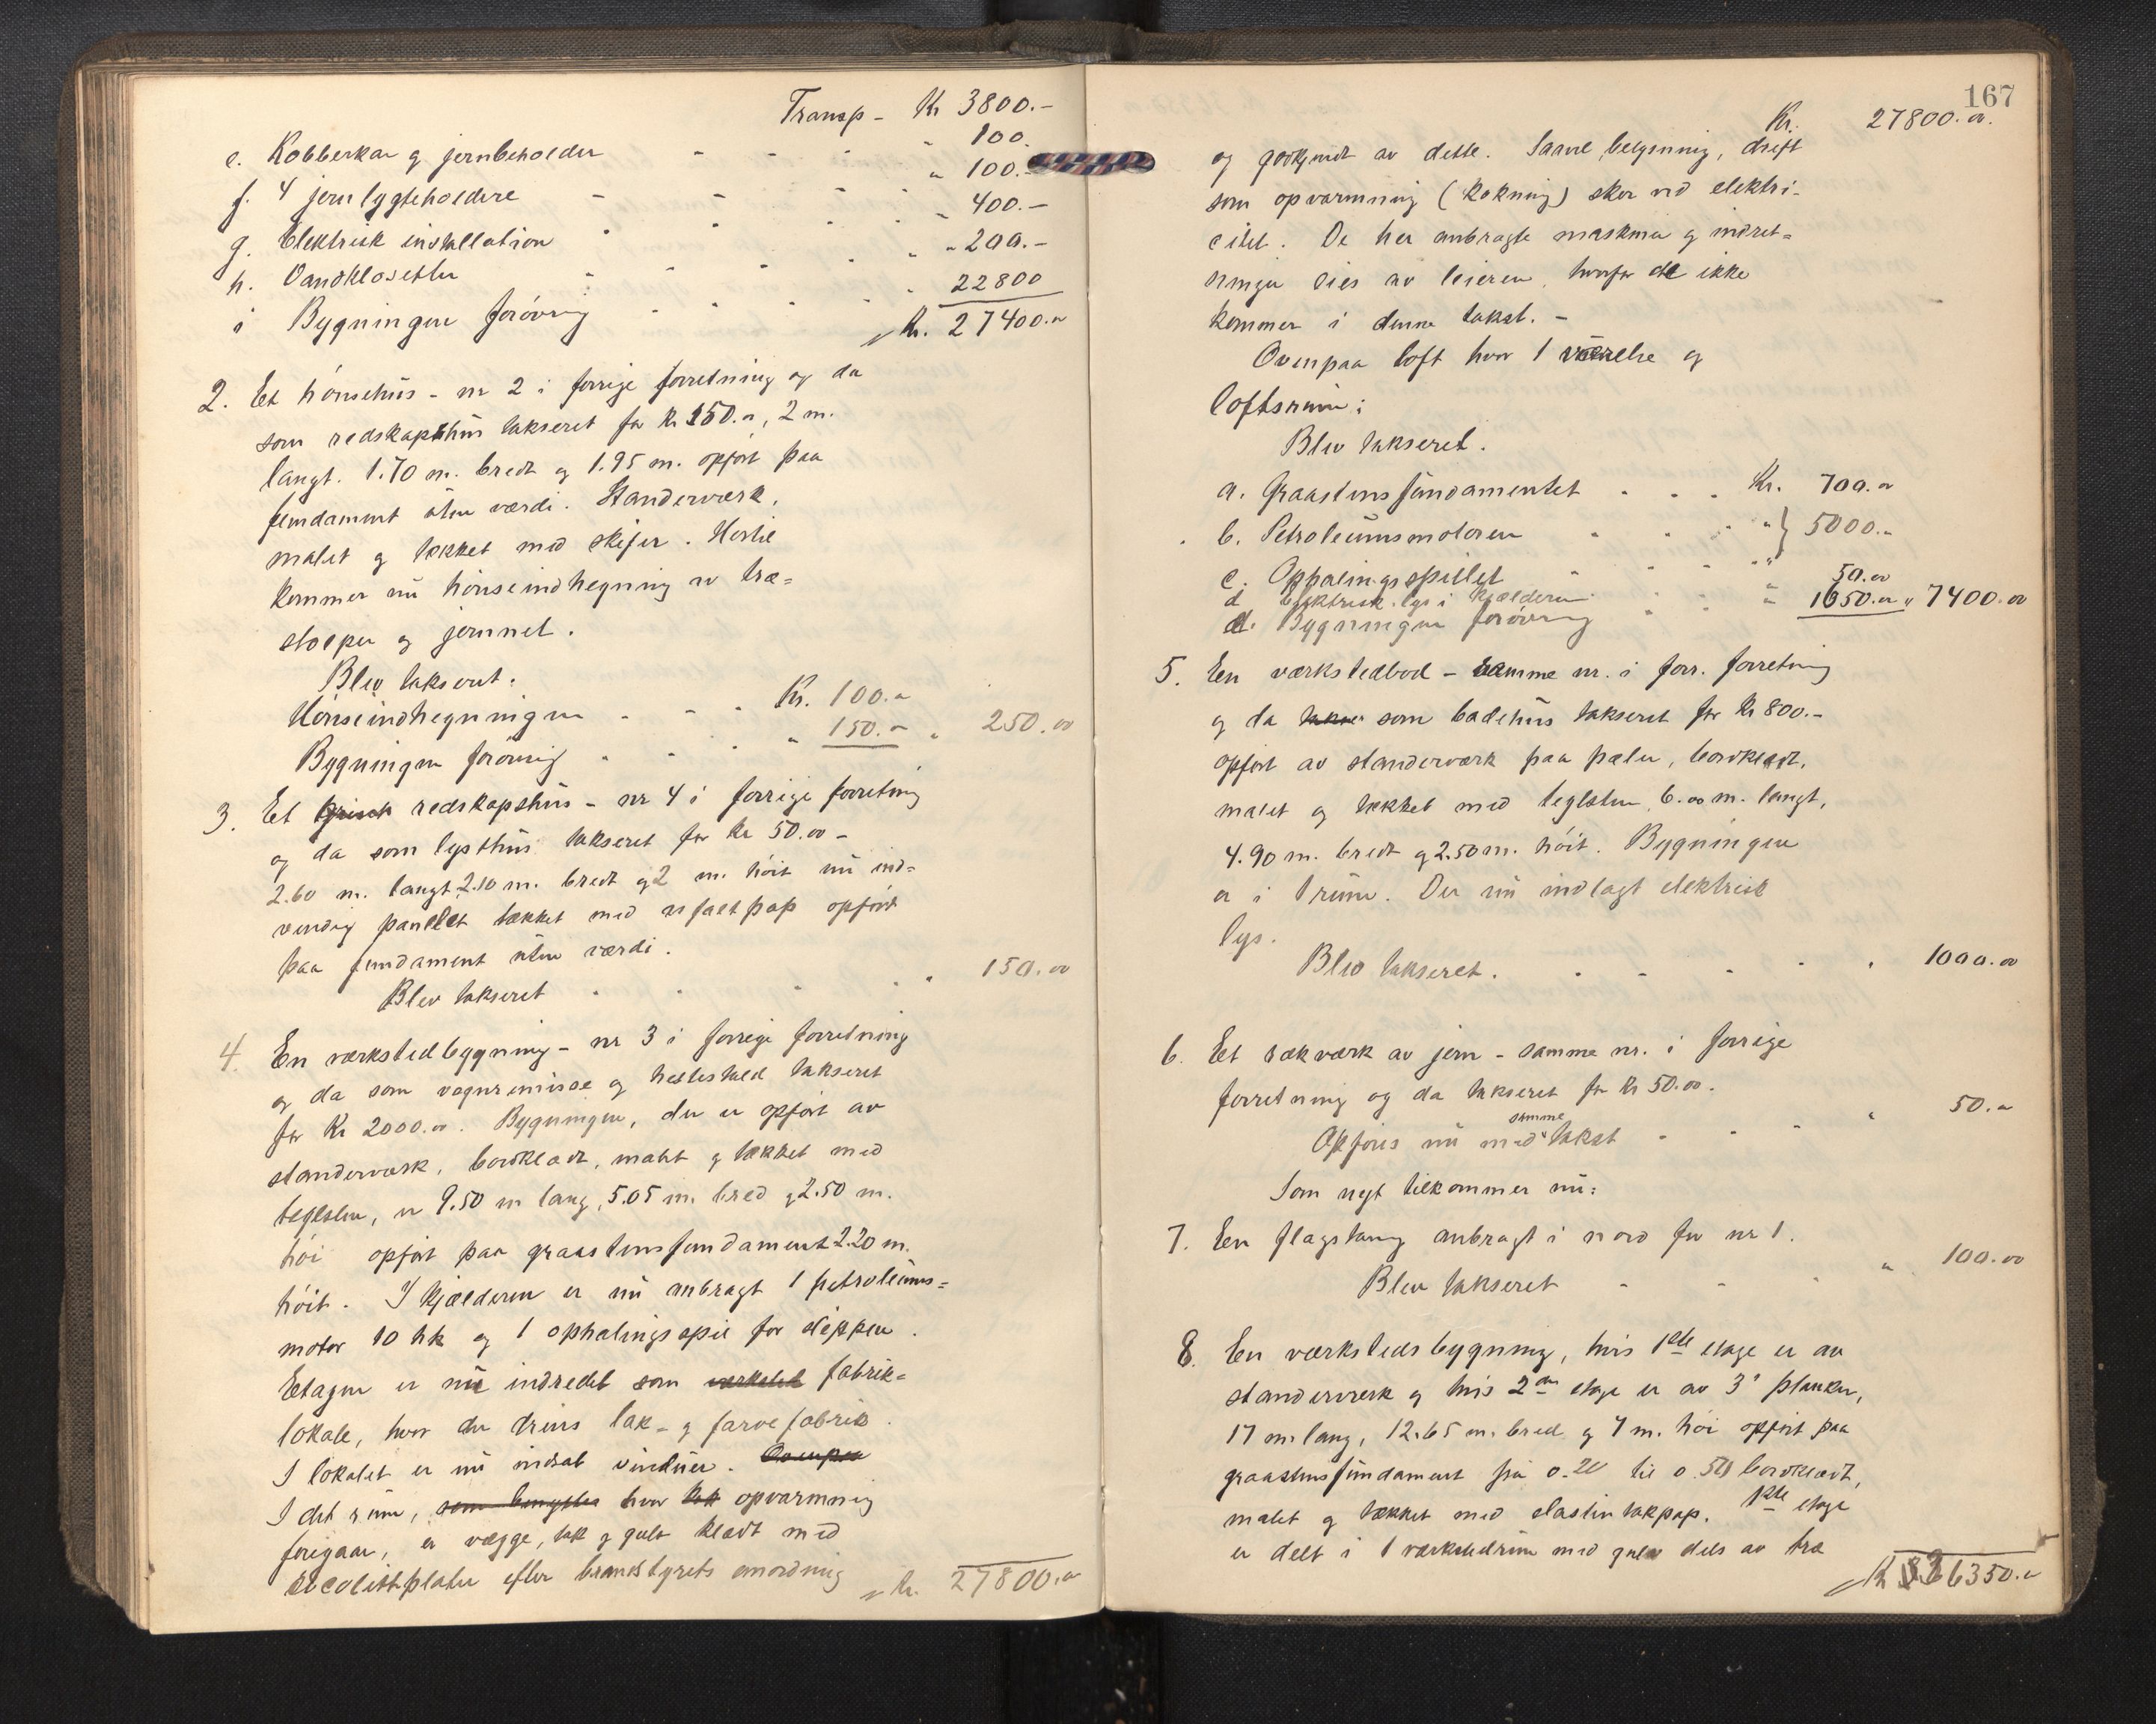 Transp - Kr 3800.-
e. Kobberkar og jernbeholder - - - " 100.
f. 4 jern lygteholdere - - - " 100.-
g. Elektrisk installation " 400.-
h. Vandklosetter " 200.-
i Bygningen forøvrig " 22800
Kr. 27400.00
2. Et hønsehus - nr 2 i forrige forretning og da
som redskapshus takseret for kr 150.00, 2 m.
langt. 1.70 m. bredt og 1.95 m. opført paa
fundament uten værdi. Standerværk,
malet og tækket med skifer. Hertil
kommer nu hønseindhegning av træ=
stolper og jernnet.
Blev takseret:
Hønseindhegningen - - - Kr. 100.00
Bygningen forøvrig " 150.- " 250.00
3. Et redskapshus - nr 4 i forrige forretning
og da som lysthus takseret for kr 50.00 -
2.60 m. langt 2.10 m. bredt og 2 m. høit nu ind=
vendig panelet tækket med asfaltpap opført
paa fundament uten værdi.
Blev takseret " 150.00
4. En værkstedbygning - nr 3 i forrige forretning
og da som vognremisse og hestestald takseret
for Kr 2000.00. Bygningen, der er opført av
standerværk, bordklædt, malet og tækket med
teglsten, er 9.50 m lang, 5.05 m. bred og 2.50 m.
høi opført paa graastensfundament 2.20 m.
høit. I kjælderen er nu anbragt 1 petroleums=
motor 10 hk og 1 ophalingsspil for slippen.
Etagen er nu indredet som værksted fabrik=
lokale, hvor der drives lak- og farvefabrik.
I lokalet er nu indsat vinduer. Ovenpaa
I det rum, som benyttes hvor lak opvarmning
foregaar, er vægge, tak og gulv klædt med
plater efter brandstyrets anordning
Kr. 27800.00
167
Kr. 27800.00.
og godkjendt av dette. Saavel belysning, drift
som opvarmning (kokning) sker ved elektri-
citet. De her anbragte maskiner og indret=
ninger eies av leieren, hvorfor de ikke
kommer i denne takst. -
Ovenpaa loft hvor 1 værelse og
loftsrum:
Blev takseret.
a. Graastensfundamentet - - - Kr. 700.00
b. Petroleumsmotoren " } 5000.-
c. Ophalingsspillet "
d Elektrisk lys i kjælderen " 50.00
d. Bygningen forøvrig " 1650.00 " 7400.00
5. En værkstedbod - samme nr. i forr. forretning
og da som badehus takseret for kr 800.-
opført av standerværk paa pæler, bordklædt,
malet og tækket med teglsten 6.00 m. langt,
4.90 m. bredt og 2.50 m. høit. Bygningen
er i 1 rum. Der nu indlagt elektrisk
lys.
Blev takseret. " 1000.00
6. Et rækværk av jern - samme nr. i forrige
forretning og da takseret for kr 50.00.
samme
Opføres nu med takst " 50.00
Som nyt tilkommer nu:
7. En flagstang anbragt i nord for nr 1.
Blev takseret " 100.00
8. En værkstedsbygning, hvis 1ste etage er av
standerværk og hvis 2den etage er av 3" planker,
17 m. lang, 12.65 m. bred og 7 m. høi opført paa
graastensfundament fra 0.20 til 0.50 bordklædt,
malet og tækket med elastintakpap. 1ste etage
er delt i 1 værkstedrum med gulv dels av træ
Kr 36350.00